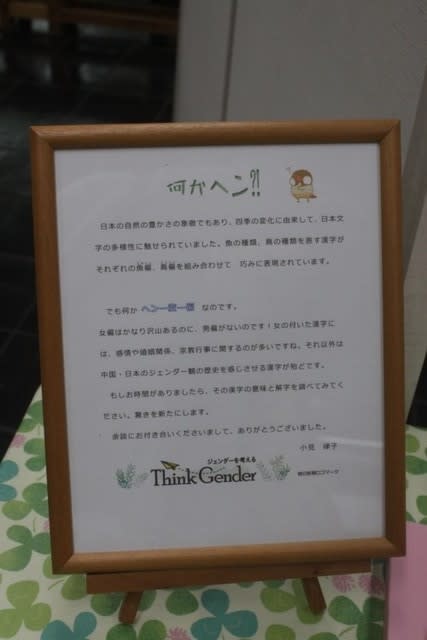 何かヘン?!
日本の自然の豊かさの象徴でもあり、四季の変化に由来して、日本文
字の多様性に魅せられていました。魚の種類、鳥の種類を表す漢字が
それぞれの魚偏、鳥偏を組み合わせて 巧みに表現されています。
でも何か ヘン－変－偏 なのです。
女偏はかなり沢山あるのに、男偏がないのです！女の付いた漢字に
は、感情や婚姻関係、宗教行事に関するのが多いですね、それ以外は
中国・日本のジェンダー観の歴史を感じさせる漢字が殆どです。
もしお時間がありましたら、その漢字の意味と解字を調べてみてく
ださい。驚きを新たにします。
余談にお付き合いくださいまして、ありがとうございました。
小見 律子
ジェンダーを考える
Think Gender
朝日新聞ロゴマーク